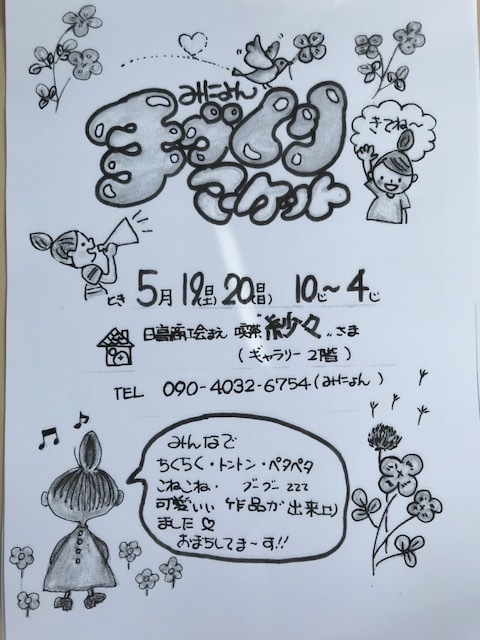 みにょん
手づくり
マーケット
きてね～
とき 5月 19日(土) 20日(日) 10じ～4じ
日高商工会まえ 喫茶"紗々"さま
(ギャラリー 2階)
TEL 090-4032-6754(みにょん)
みんなで
ちくちく・トントン・ペタペタ
こねこね・ブーブー zzz
可愛いい 作品が 出来上り
ました♡
おまちしてま～す!!